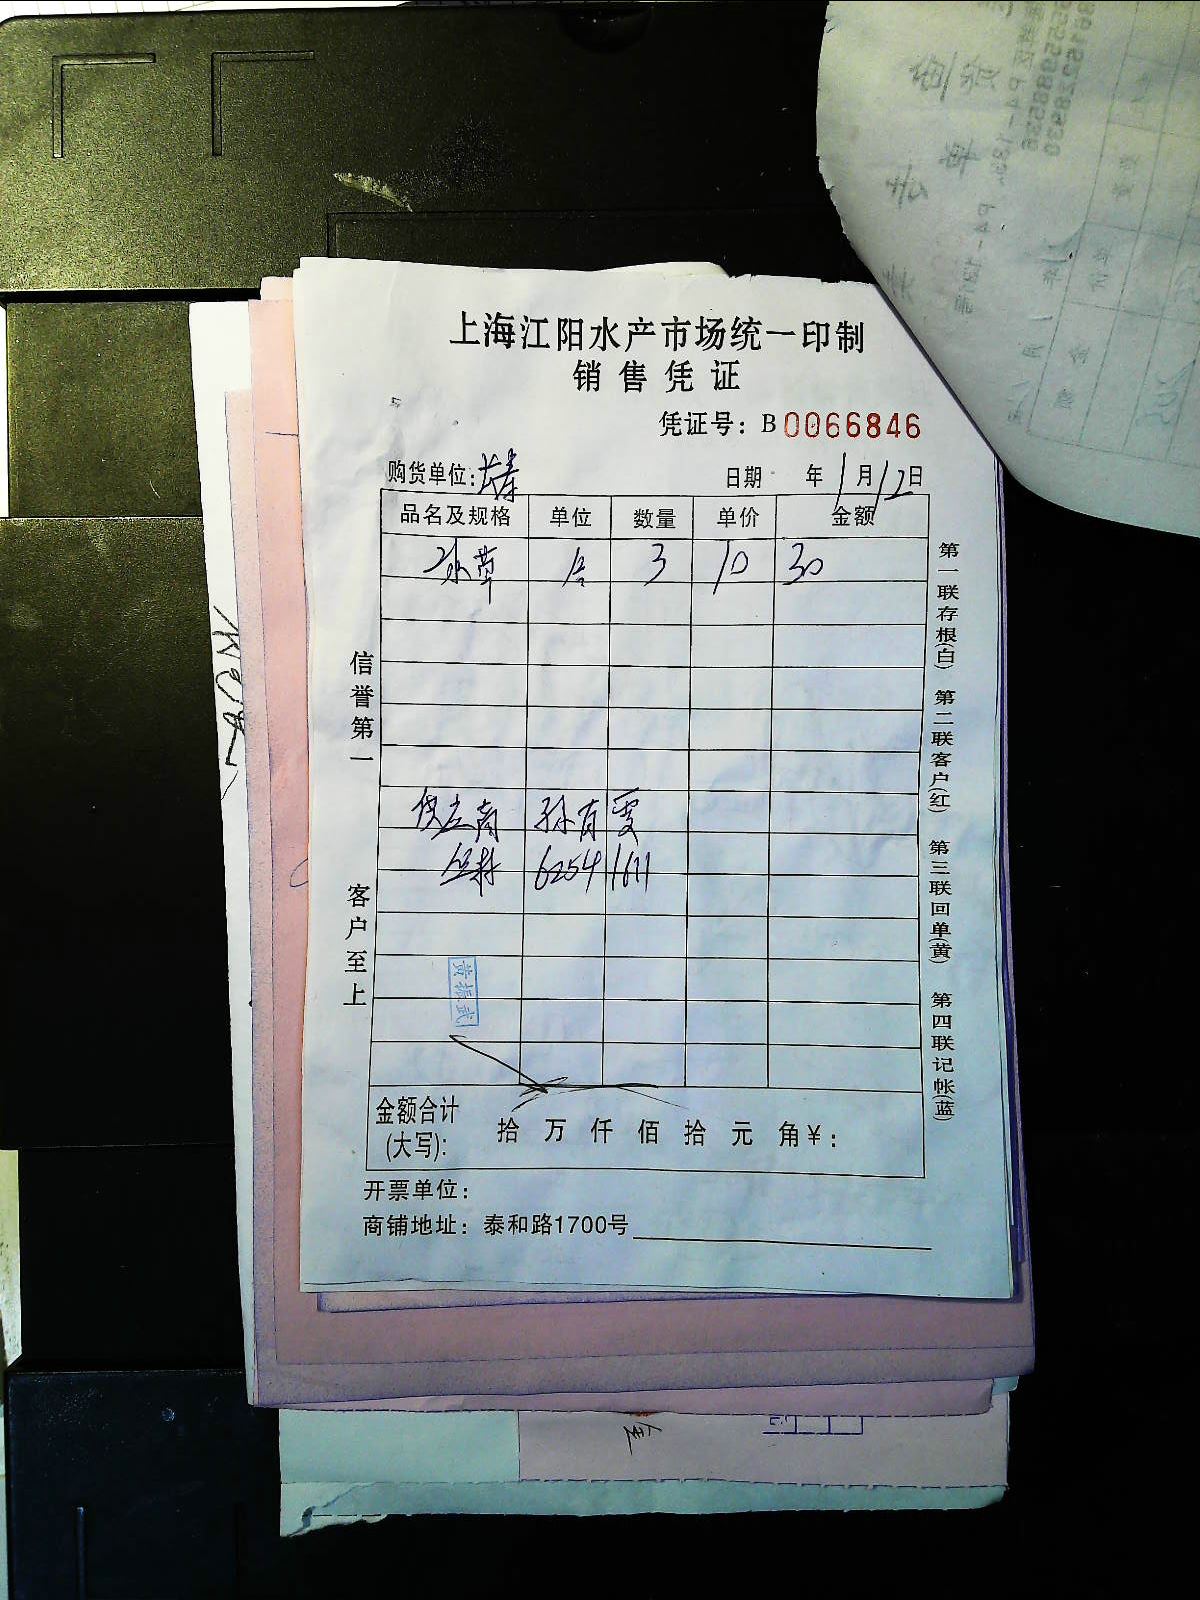 上海江阳水产市场统一印制
销售凭证
凭证号：B0066846
购货单位：长寿
日期 年1月12日
品名及规格 单位 数量 单价 金额
水草 合 3 10 30
供应商 孙育雯
62541611
黄振武
金额合计(大写): 拾 万 仟 佰 拾 元 角 ¥：
开票单位：
商铺地址：泰和路1700号
信誉第一
客户至上
第一联存根(白) 第二联客户(红) 第三联回单(黄) 第四联记帐(蓝)